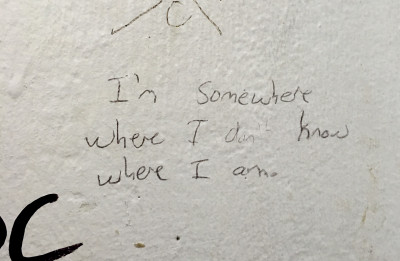 C
I'm Somewhere
where I don't know
where I am.
OC